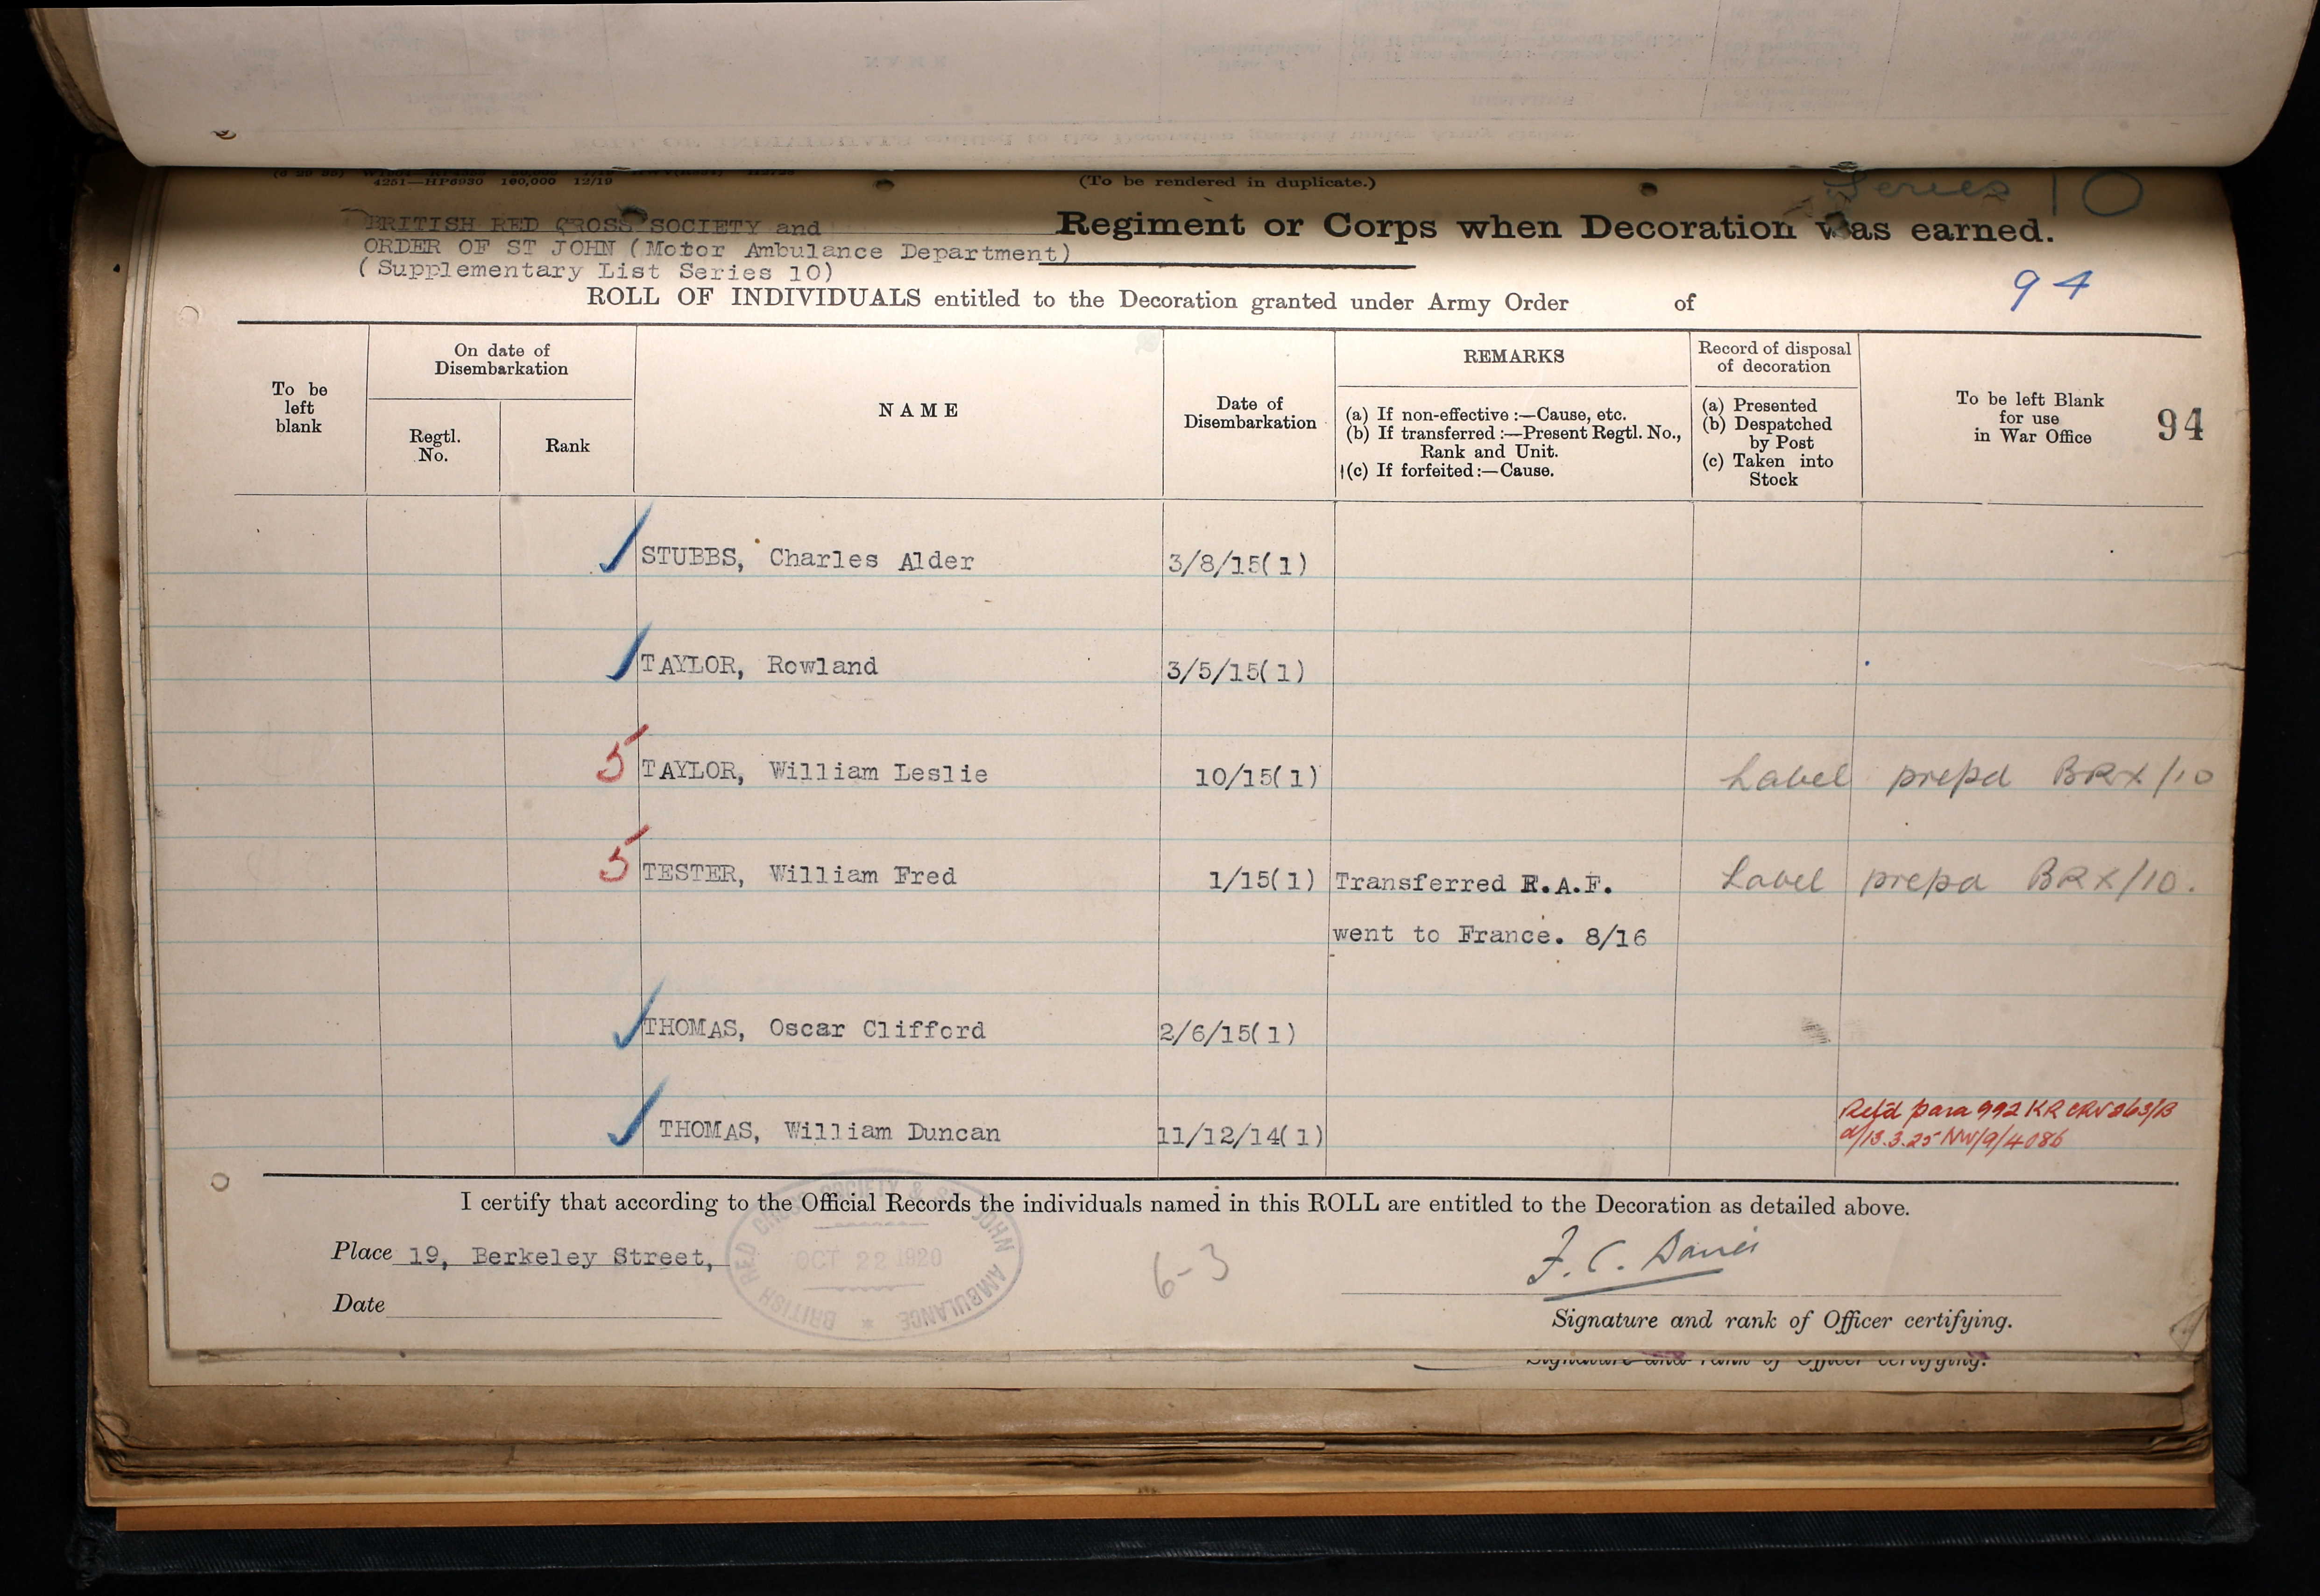 4251—HP6930 100,000 12/19
(To be rendered in duplicate.)
Series 10
BRITISH RED CROSS SOCIETY and
Regiment or Corps when Decoration was earned.
ORDER OF ST JOHN (Motor Ambulance Department)
(Supplementary List Series 10)
94
ROLL OF INDIVIDUALS entitled to the Decoration granted under Army Order of
To be left blank
On date of Disembarkation
Regtl. No.
Rank
NAME
Date of Disembarkation
REMARKS
(a) If non-effective :—Cause, etc.
(b) If transferred :—Present Regtl. No., Rank and Unit.
(c) If forfeited :—Cause.
Record of disposal of decoration
(a) Presented
(b) Despatched by Post
(c) Taken into Stock
To be left Blank for use in War Office
94
STUBBS, Charles Alder 3/8/15(1)
TAYLOR, Rowland 3/5/15(1)
5 TAYLOR, William Leslie 10/15(1) Label prepd BRX/10
5 TESTER, William Fred 1/15(1) Transferred R.A.F. Label prepd BRX/10.
went to France. 8/16
THOMAS, Oscar Clifford 2/6/15(1)
THOMAS, William Duncan 11/12/14(1) Ret'd para 992 KR
d/13.3.25 NW/9/4086
I certify that according to the Official Records the individuals named in this ROLL are entitled to the Decoration as detailed above.
Place 19, Berkeley Street,
BRITISH RED CROSS SOCIETY & JOHN AMBULANCE
OCT 22 1920
6-3
F. C. Davies
Date
Signature and rank of Officer certifying.
Signature and rank of Officer certifying.